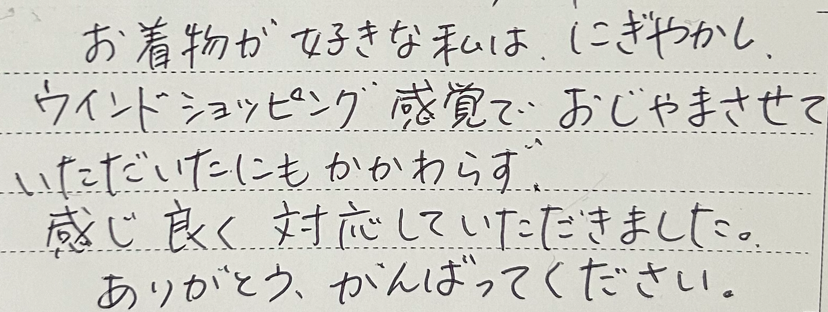 お着物が好きな私は、にぎやかし、
ウインドショッピング感覚で おじゃまさせて
いただいたにもかかわらず、
感じ良く対応していただきました。
ありがとう、がんばってください。